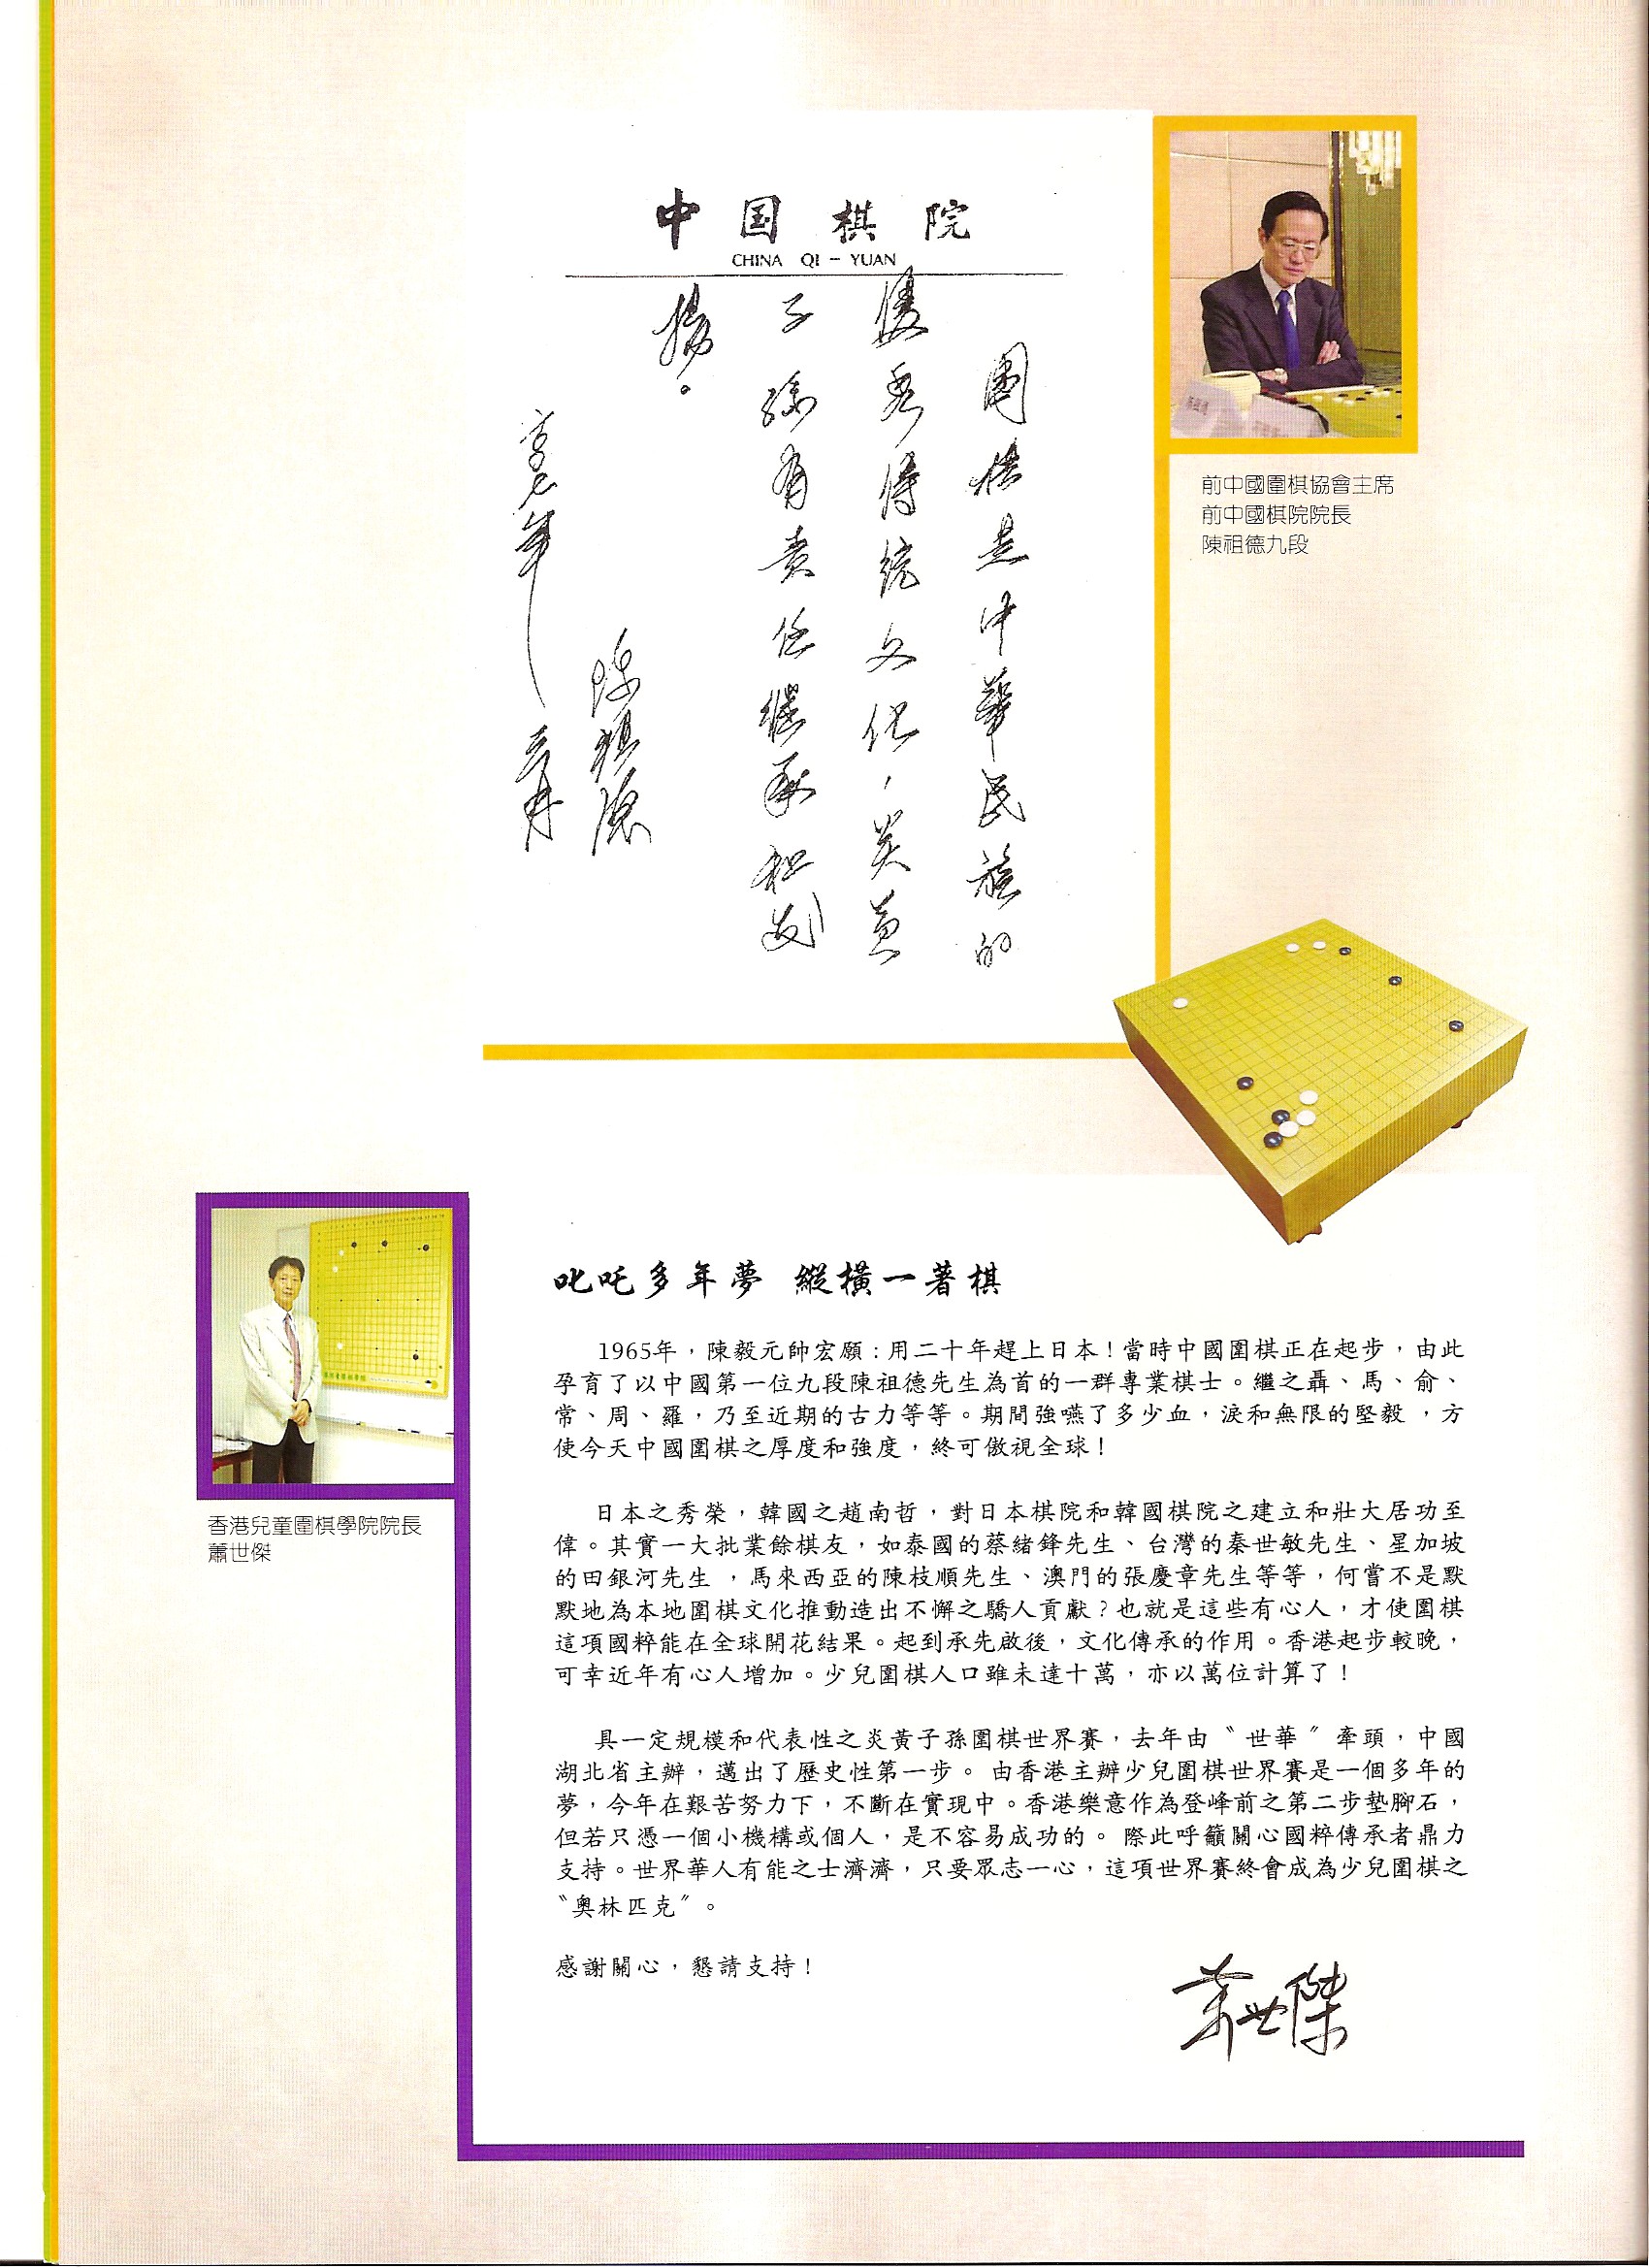 中国棋院
CHINA QI - YUAN
圍棋是中華民族的
優秀傳統文化，炎黃
子孫有責任繼承和發
揚。
陳祖德
零七年
三月
前中國圍棋協會主席
前中國棋院院長
陳祖德九段
香港兒童圍棋學院院長
蕭世傑
叱吒多年夢 縱橫一著棋
1965年，陳毅元帥宏願：用二十年趕上日本！當時中國圍棋正在起步，由此
孕育了以中國第一位九段陳祖德先生為首的一群專業棋士。繼之聶、馬、俞、
常、周、羅，乃至近期的古力等等。期間強嚥了多少血，淚和無限的堅毅，方
使今天中國圍棋之厚度和強度，終可傲視全球！
日本之秀榮，韓國之趙南哲，對日本棋院和韓國棋院之建立和壯大居功至
偉。其實一大批業餘棋友，如泰國的蔡緒鋒先生、台灣的秦世敏先生、星加坡
的田銀河先生，馬來西亞的陳枝順先生、澳門的張慶章先生等等，何嘗不是默
默地為本地圍棋文化推動造出不懈之驕人貢獻？也就是這些有心人，才使圍棋
這項國粹能在全球開花結果。起到承先啟後，文化傳承的作用。香港起步較晚，
可幸近年有心人增加。少兒圍棋人口雖未達十萬，亦以萬位計算了！
具一定規模和代表性之炎黃子孫圍棋世界賽，去年由〝世華〞牽頭，中國
湖北省主辦，邁出了歷史性第一步。由香港主辦少兒圍棋世界賽是一個多年的
夢，今年在艱苦努力下，不斷在實現中。香港樂意作為登峰前之第二步墊腳石，
但若只憑一個小機構或個人，是不容易成功的。際此呼籲關心國粹傳承者鼎力
支持。世界華人有能之士濟濟，只要眾志一心，這項世界賽終會成為少兒圍棋之
〝奧林匹克〞。
感謝關心，懇請支持！
蕭世傑